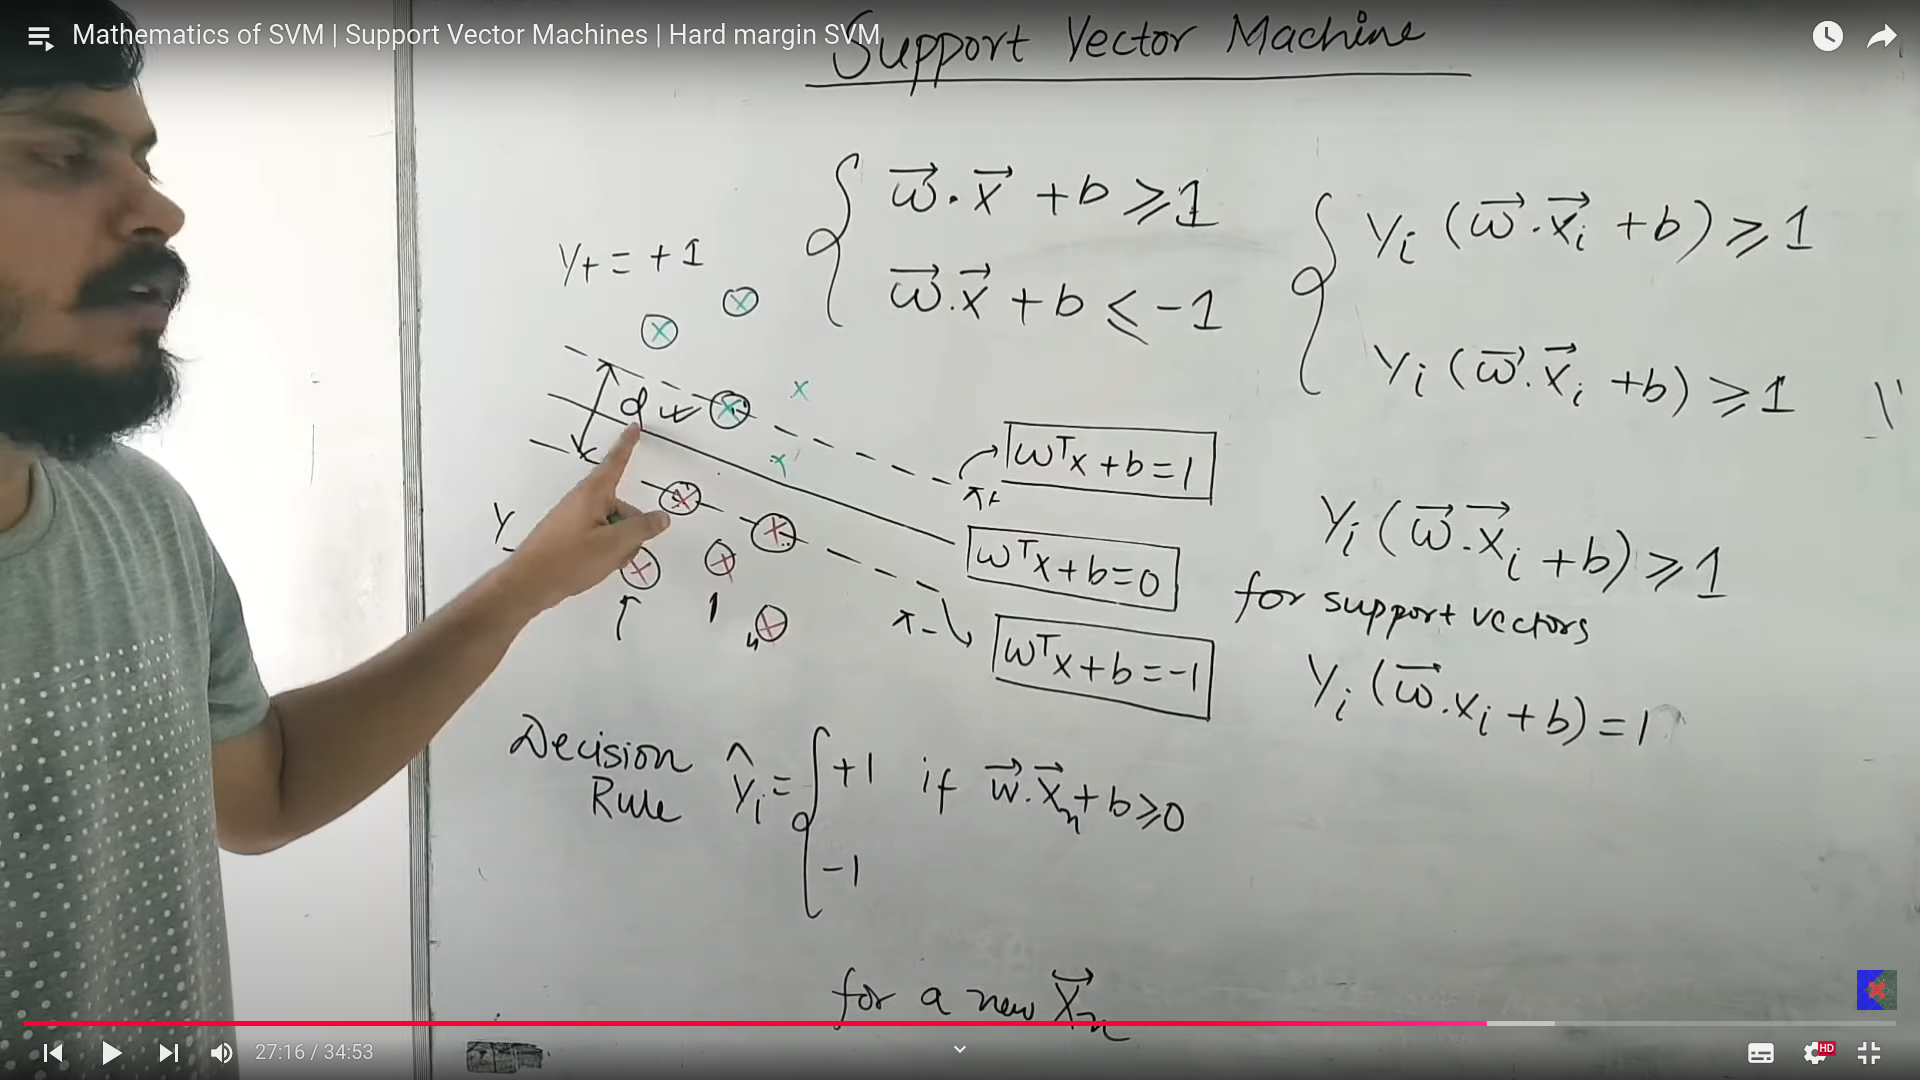 Mathematics of SVM | Support Vector Machines | Hard margin SVM
Support Vector Machine
w⃗·x⃗ + b ≥ 1
w⃗·x⃗ + b ≤ -1
yᵢ (w⃗·x⃗ᵢ + b) ≥ 1
yᵢ (w⃗·x⃗ᵢ + b) ≥ 1
y₊ = +1
d
wᵀx + b = 1
π+
wᵀx + b = 0
π-
wᵀx + b = -1
y₋
yᵢ (w⃗·x⃗ᵢ + b) ≥ 1
for support vectors
yᵢ (w⃗·xᵢ + b) = 1
Decision
Rule
ŷᵢ = { +1 if w⃗·x⃗ₙ + b ≥ 0
-1
for a new x⃗ₙ
27:16 / 34:53
HD